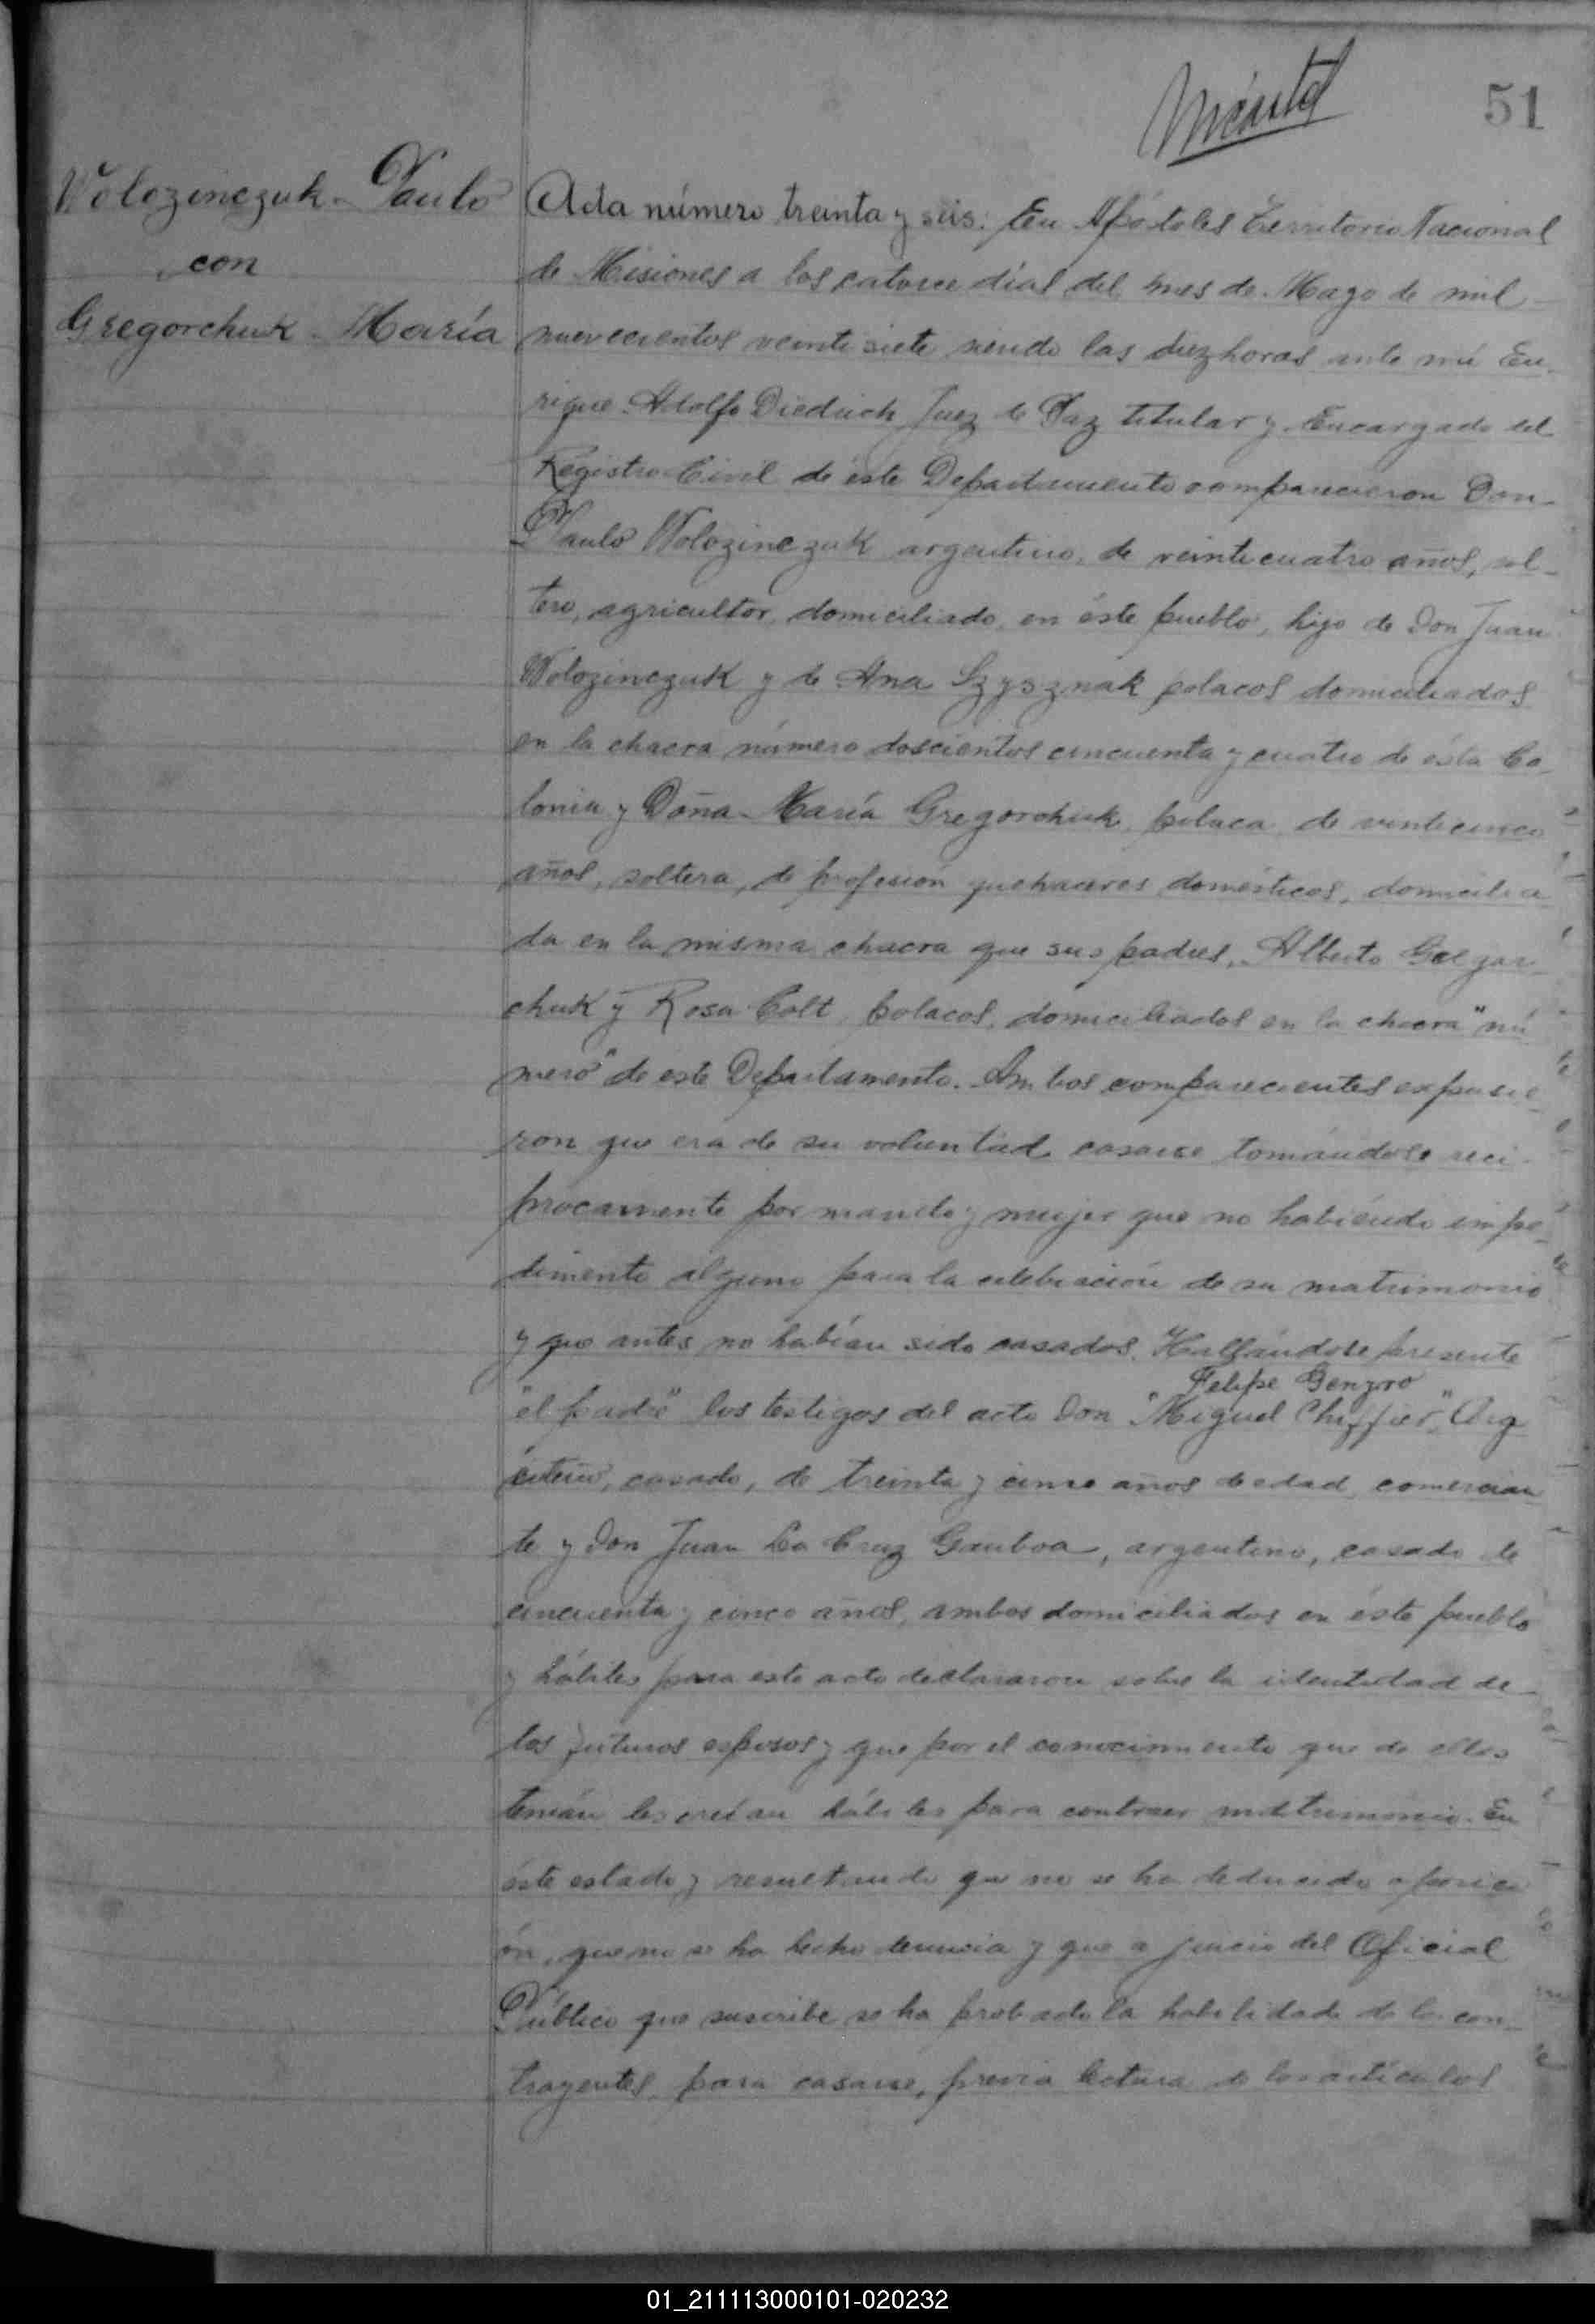 51
Wolozinczuk - Paulo
con
Gregorchuk - María
Acta número treinta y seis: En Apóstoles Territorio Nacional
de Misiones a los catorce días del mes de Mayo de mil
nuevecientos veintisiete siendo las diez horas ante mí En-
rique Adolfo Diedrich Juez de Paz titular y Encargado del
Registro Civil de éste Departamento comparecieron Don
Paulo Wolozinczuk argentino, de veinticuatro años, sol-
tero, agricultor, domiciliado en éste pueblo, hijo de Don Juan
Wolozinczuk y de Ana Szysznak polacos domiciliados
en la chacra número doscientos cincuenta y cuatro de ésta Co-
lonia y Doña María Gregorchuk, polaca de veinticinco
años, soltera, de profesión quehaceres domésticos, domicilia
da en la misma chacra que sus padres, Alberto Gregor-
chuk y Rosa Colt polacos, domiciliados en la chacra "nú
mero" de este Departamento. Ambos comparecientes expusie-
ron que era de su voluntad casarse tomándose recí-
procamente por marido y mujer que no habiendo impe-
dimento alguno para la celebración de su matrimonio
y que antes no habían sido casados. Hallándose presente
Felipe
"el padre" los testigos del acto Don "Miguel Chiffier", Arg
entino, casado, de treinta y cinco años de edad, comercian
te y Don Juan La Cruz Gamboa, argentino, casado de
cincuenta y cinco años, ambos domiciliados en éste pueblo
y hábiles para este acto declararon sobre la identidad de
los futuros esposos y que por el conocimiento que de ellos
tenían los creían hábiles para contraer matrimonio. En
éste estado y resultando que no se ha deducido oposici
ón, que no se ha hecho denuncia y que a juicio del Oficial
Público que suscribe se ha probado la habilidad de los con-
trayentes para casarse, previa lectura de los artículos
01_211113000101-020232